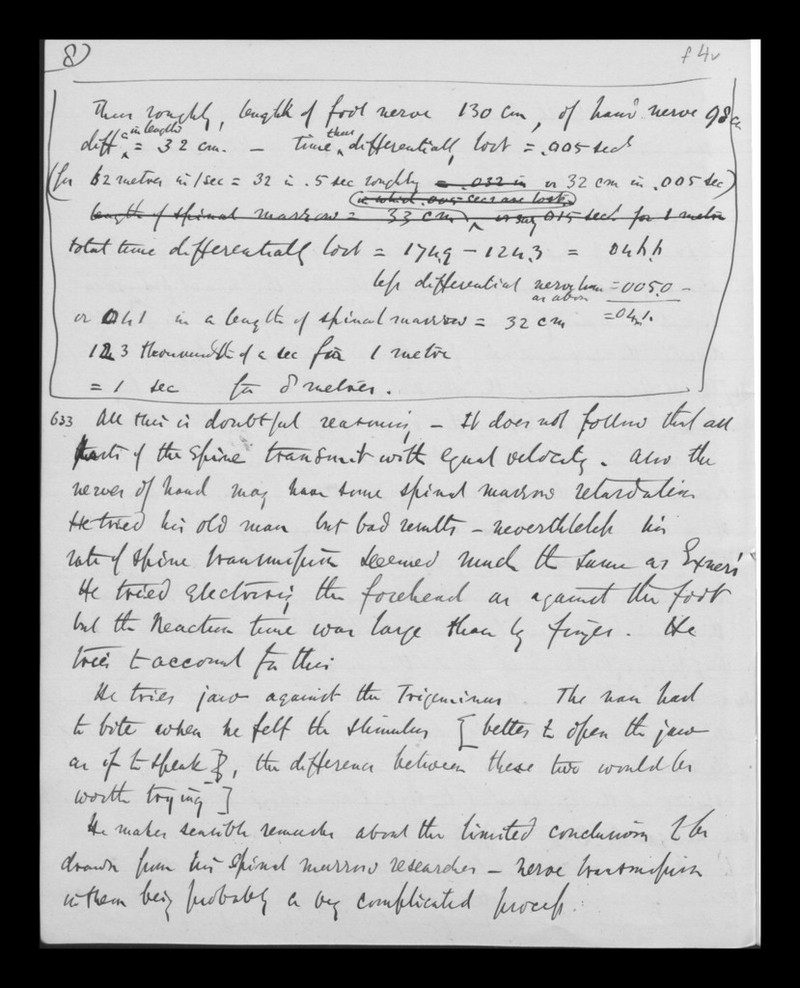 8)
f 4v
Thus roughly, length of foot nerve 130 cm, of hand nerve 98 cm
diffce in lengths = 32 cm. – time thus differentially lost = .005 secd
(for 62 metres in/sec = 32 in .5 sec roughly = .032 in or 32 cm in .005 sec)
in which .005 secs are lost
length of spinal marrow = 33 cm, or say 015 secd. for 1 metre
total time differentially lost = 1749 – 1243 =
less differential nerve as above = 0050 –
or 041 in a length of spinal marrow = 32 cm
123 thousandth of a sec for 1 metre
= 1 sec for 8 metres.
633 All this is doubtful reasoning – It does not follow that all
parts of the spine transmit with equal velocity. Also the
nerves of hand may have some spinal marrow retardation
He tried his old man but bad results – nevertheless his
rate of spine transmission seemed much the same as Exner's
He tried electrising the forehead as against the foot
but the Reaction time was large than by finger. He
tries to account for this
He tries jaw against the Trigeminus. The man had
to bite when he felt the stimulus [ better to open the jaw
as if to speak ], the difference between these two would be
worth trying ]
He makes sensible remarks about the limited conclusions to be
drawn from his spinal marrow researches – nerve transmission
in them being probably a very complicated process.